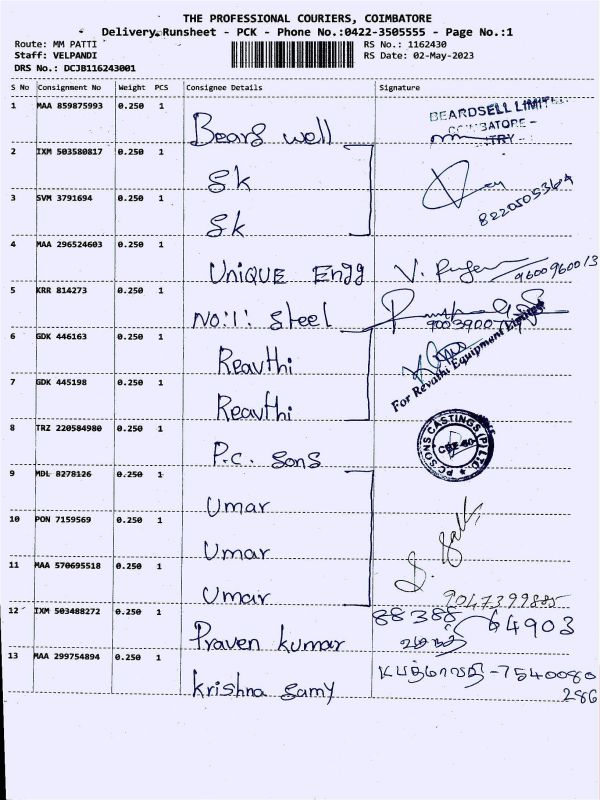 THE PROFESSIONAL COURIERS, COIMBATORE
Delivery Runsheet - PCK - Phone No.:0422-3505555 - Page No.:1
Route: MM PATTI RS No.: 1162430
Staff: VELPANDI RS Date: 02-May-2023
DRS No.: DCJB116243001
S No Consignment No Weight PCS Consignee Details Signature
1 MAA 859875993 0.250 1 Bears well BEARDSELL LIMITED
2 IXM 503580817 0.250 1 Sk
3 SVM 3791694 0.250 1 Sk 8220505364
4 MAA 296524603 0.250 1 UNIQUE Engg 9600960013
5 KRR 814273 0.250 1 No:1: Steel
6 GDK 446163 0.250 1 Reavthi For Revathi Equipment Limited
7 GDK 445198 0.250 1 Reavthi
8 TRZ 220584980 0.250 1 P.c. Sons P.C SONS CASTINGS (P) LTD.
9 MDL 8278126 0.250 1 Umar
10 PON 7159569 0.250 1 Umar
11 MAA 570695518 0.250 1 Umar 9047399885
12 IXM 503488272 0.250 1 Praven kumar 88388 64903
13 MAA 299754894 0.250 1 krishna samy 7540080
286